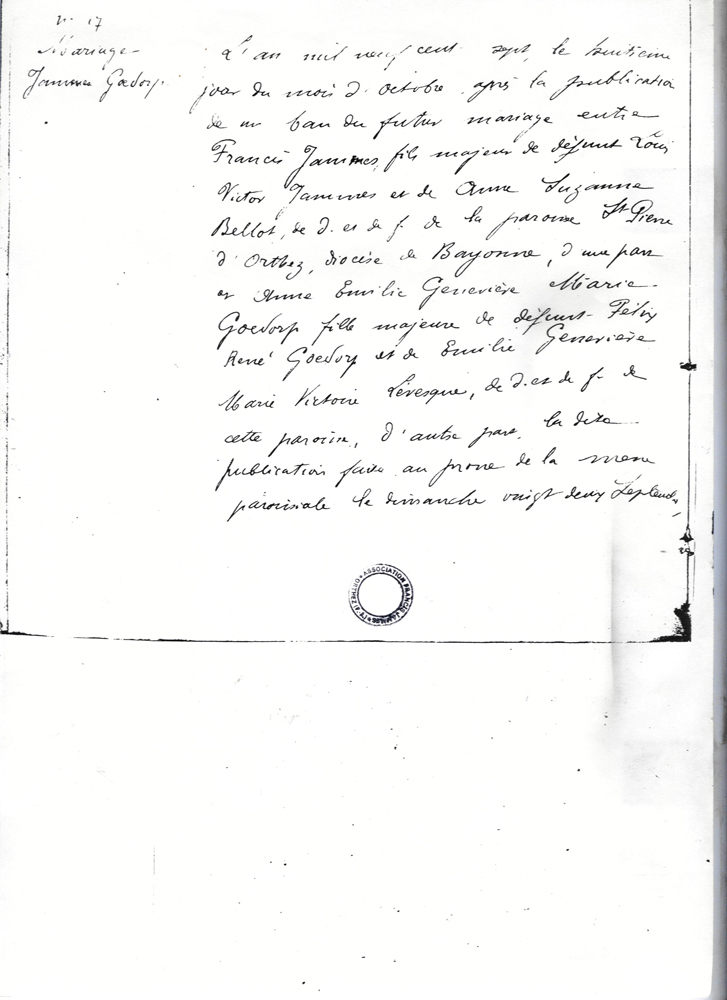 N° 17
Mariage
Jammes Goedorp
L'an mil neuf cent sept, le huitième
jour du mois d'octobre, après la publication
de un ban du futur mariage entre
Francis Jammes, fils majeur de défunt Louis
Victor Jammes et de Anne Suzanne
Bellot, de d. et de f. de la paroisse St Pierre
d'Orthez, diocèse de Bayonne, d'une part
et Anne Emilie Geneviève Marie
Goedorp fille majeure de défunt Félix
René Goedorp et de Emilie Geneviève
Marie Victoire Lévesque, de d. et de f. de
cette paroisse, d'autre part, la dite
publication faite au prone de la messe
paroissiale le dimanche vingt deux Septembre,
ASSOCIATION FRANCIS JAMMES * ORTHEZ *